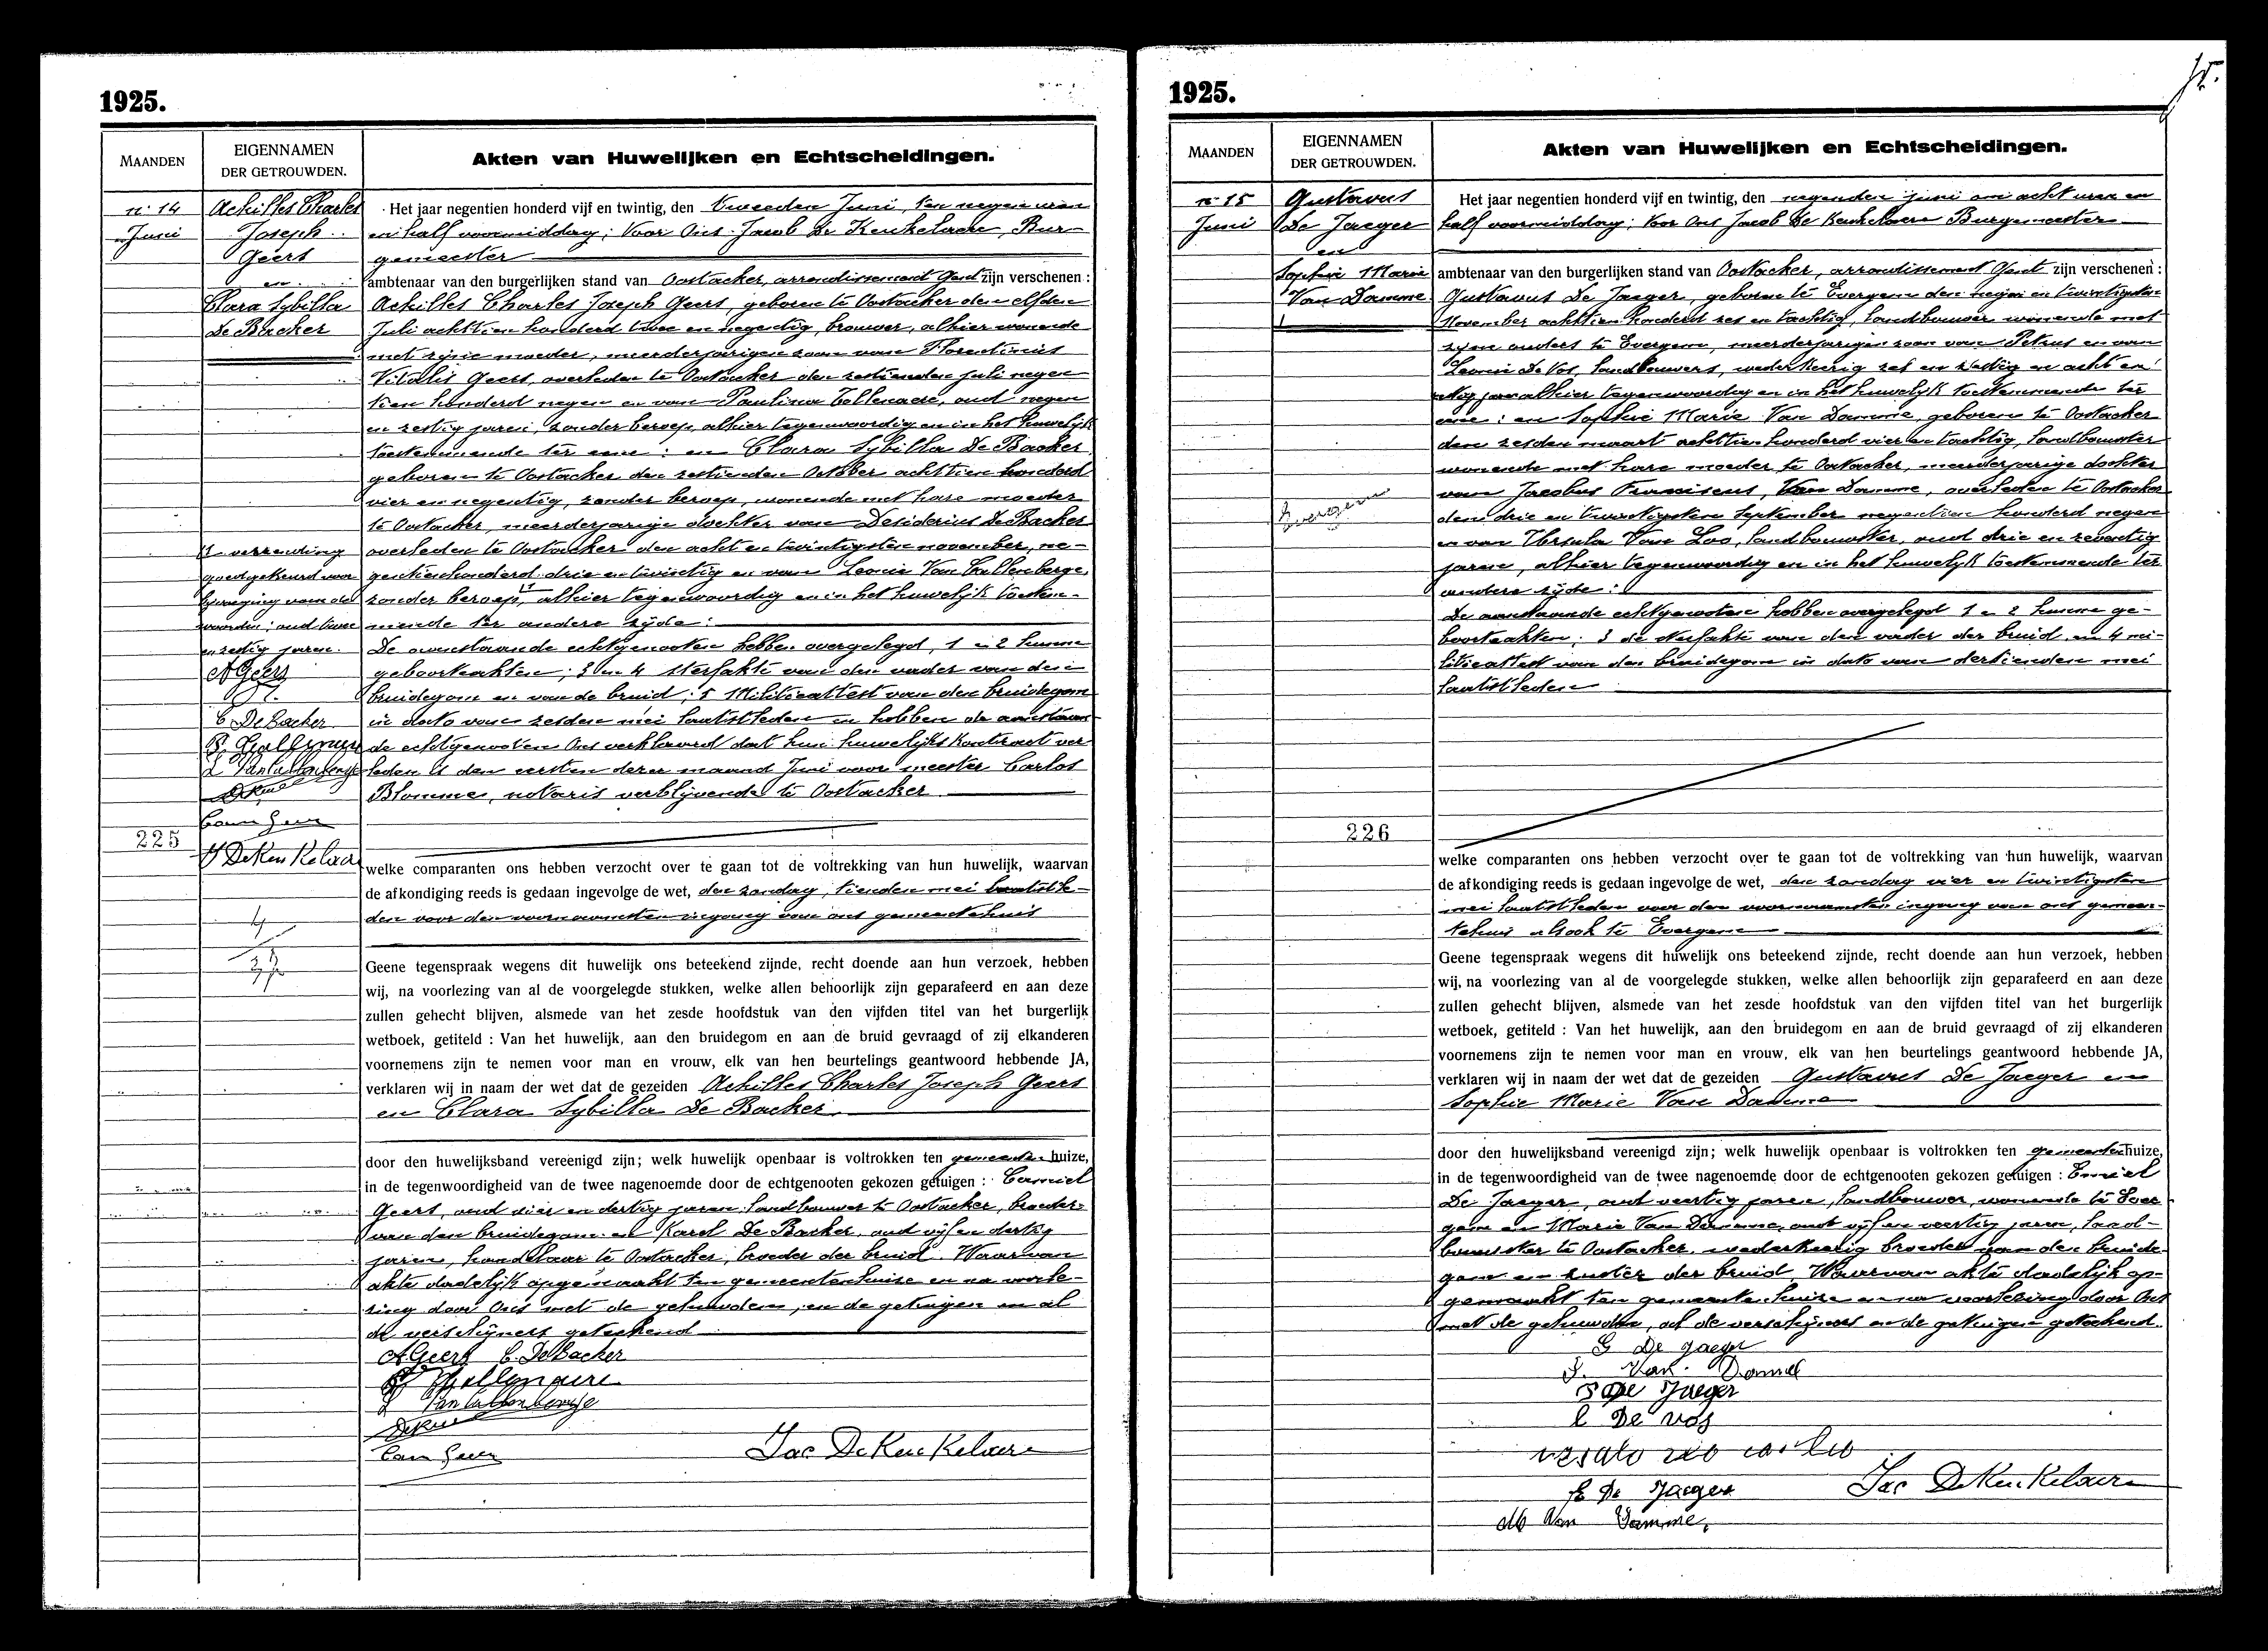 1925.
MAANDEN
EIGENNAMEN
DER GETROUWDEN.
Akten van Huwelijken en Echtscheidingen.
n° 14
Juni
Achilles Charles
Joseph
Geert
en
Clara Sybilla
De Backer
Het jaar negentien honderd vijf en twintig, den tweeden Juni, ten negen uren
en half voormiddag; Voor Ons Jacob De Keukelaere, Bur-
gemeester
ambtenaar van den burgerlijken stand van Oostacker, arrondissement Gent zijn verschenen :
Achilles Charles Joseph Geert, geboren te Oostacker den elfden
Juli achttien honderd twee en negentig, brouwer, alhier wonende
met zijne moeder, meerderjarigen zoon van Florentinus
Vitalis Geert, overleden te Oostacker den zestienden juli negen
tien honderd negen en van Paulina Tollenaere, oud negen
en zestig jaren, zonder beroep, alhier tegenwoordig en in het huwelijk
toestemmende ter eene : en Clara Sybilla De Backer
geboren te Oostacker den zestienden October achttien honderd
vier en negentig, zonder beroep, wonende met hare moeder
te Oostacker, meerderjarige dochter van Desiderius De Backer
overleden te Oostacker den acht en twintigsten november, ne-
gentienhonderd drie en twintig en van Leonie Van Callenberge
zonder beroep, alhier tegenwoordig en in het huwelijk toestem-
mende ter andere zijde :
De aanstaande echtgenooten hebben overgelegd, 1 en 2 hunne
geboorteakten; 3 en 4 sterfakte van den vader van den
bruidegom en van de bruid; 5 Militieattest van den bruidegom
in dato van zesden mei laatstleden en hebben de aanstaan-
de echtgenooten Ons verklaard dat hun huwelijks kontract ver
leden is den eersten dezer maand Juni voor meester Carlos
Blomme, notaris verblijvende te Oostacker
1 verzending
goedgekeurd voor
bijvoeging van de
woorden : oud twee
en zestig jaren.
A Geers
C DeBacker
225
welke comparanten ons hebben verzocht over te gaan tot de voltrekking van hun huwelijk, waarvan
de afkondiging reeds is gedaan ingevolge de wet, den zondag, tienden mei laatstle-
den voor den voornaamsten ingang van ons gemeentehuis
Geene tegenspraak wegens dit huwelijk ons beteekend zijnde, recht doende aan hun verzoek, hebben
wij, na voorlezing van al de voorgelegde stukken, welke allen behoorlijk zijn geparafeerd en aan deze
zullen gehecht blijven, alsmede van het zesde hoofdstuk van den vijfden titel van het burgerlijk
wetboek, getiteld : Van het huwelijk, aan den bruidegom en aan de bruid gevraagd of zij elkanderen
voornemens zijn te nemen voor man en vrouw, elk van hen beurtelings geantwoord hebbende JA,
verklaren wij in naam der wet dat de gezeiden Achilles Charles Joseph Geert
en Clara Sybilla De Backer
door den huwelijksband vereenigd zijn; welk huwelijk openbaar is voltrokken ten gemeentenhuize,
in de tegenwoordigheid van de twee nagenoemde door de echtgenooten gekozen getuigen : Camiel
Geert, oud vier en dertig jaren landbouwer te Oostacker, broeder
van den bruidegom en Karel De Backer, oud vijf en dertig
jaren, handelaar te Oostacker, broeder der bruid. Waarvan
akte dadelijk opgemaakt ten gemeentenhuize en na voorle-
zing door Ons met de gehuwden, en de getuigen en al
de verschijners geteekend
A Geers C. De Backer
Jac De Keukelaere
1925.
MAANDEN
EIGENNAMEN
DER GETROUWDEN.
Akten van Huwelijken en Echtscheidingen.
n° 15
Juni
Gustavus
De Jaeger
en
Sophie Marie
Van Damme
Evergem
Het jaar negentien honderd vijf en twintig, den negenden juni om acht uren en
half voormiddag; Voor Ons Jacob De Keukelaere Burgemeester
ambtenaar van den burgerlijken stand van Oostacker, arrondissement Gent zijn verschenen :
Gustavus De Jaeger, geboren te Evergem den negen en twintigsten
November achttien honderd zes en tachtig, landbouwer wonende met
zijne ouders te Evergem, meerderjarigen zoon van Petrus en van
Leonie De Vos, landbouwers, wederkeerig zes en zestig en acht en
zestig jaar alhier tegenwoordig en in het huwelijk toestemmende ter
eene : en Sophie Marie Van Damme, geboren te Oostacker
den zesden maart achttien honderd vier en tachtig, landbouwster
wonende met hare moeder te Oostacker, meerderjarige dochter
van Jacobus Franciscus, Van Damme, overleden te Oostacker
den drie en twintigsten September negentien honderd negen
en van Ursula Van Loo, landbouwster, oud drie en zeventig
jaren, alhier tegenwoordig en in het huwelijk toestemmende ter
andere zijde :
De aanstaande echtgenooten hebben overgelegd 1 en 2 hunne ge-
boorteakten; 3 de sterfakte van den vader der bruid en 4 mi-
litieattest van den bruidegom in dato van dertienden mei
laatstleden
226
welke comparanten ons hebben verzocht over te gaan tot de voltrekking van hun huwelijk, waarvan
de afkondiging reeds is gedaan ingevolge de wet, den zondag vier en twintigsten
mei laatstleden voor den voornaamsten ingang van ons gemeen-
tehuis alsook te Evergem
Geene tegenspraak wegens dit huwelijk ons beteekend zijnde, recht doende aan hun verzoek, hebben
wij, na voorlezing van al de voorgelegde stukken, welke allen behoorlijk zijn geparafeerd en aan deze
zullen gehecht blijven, alsmede van het zesde hoofdstuk van den vijfden titel van het burgerlijk
wetboek, getiteld : Van het huwelijk, aan den bruidegom en aan de bruid gevraagd of zij elkanderen
voornemens zijn te nemen voor man en vrouw, elk van hen beurtelings geantwoord hebbende JA,
verklaren wij in naam der wet dat de gezeiden Gustavus De Jaeger en
Sophie Marie Van Damme
door den huwelijksband vereenigd zijn; welk huwelijk openbaar is voltrokken ten gemeentenhuize,
in de tegenwoordigheid van de twee nagenoemde door de echtgenooten gekozen getuigen : Emiel
De Jaeger, oud veertig jaren, landbouwer, wonende te Ever
gem en Marie Van Damme, oud vijf en veertig jaren, land-
bouwster te Oostacker, wederkeerig broeder van den bruide-
gom en zuster der bruid, Waarvan akte dadelijk op-
gemaakt ten gemeente huize en na voorlezing door Ons
met de gehuwden, al de verschijners en de getuigen geteekend.
G De Jaeger
S. Van Damme
P De Jaeger
L De Vos
E De Jaeger
Jac De Keukelaere
M Van Damme,